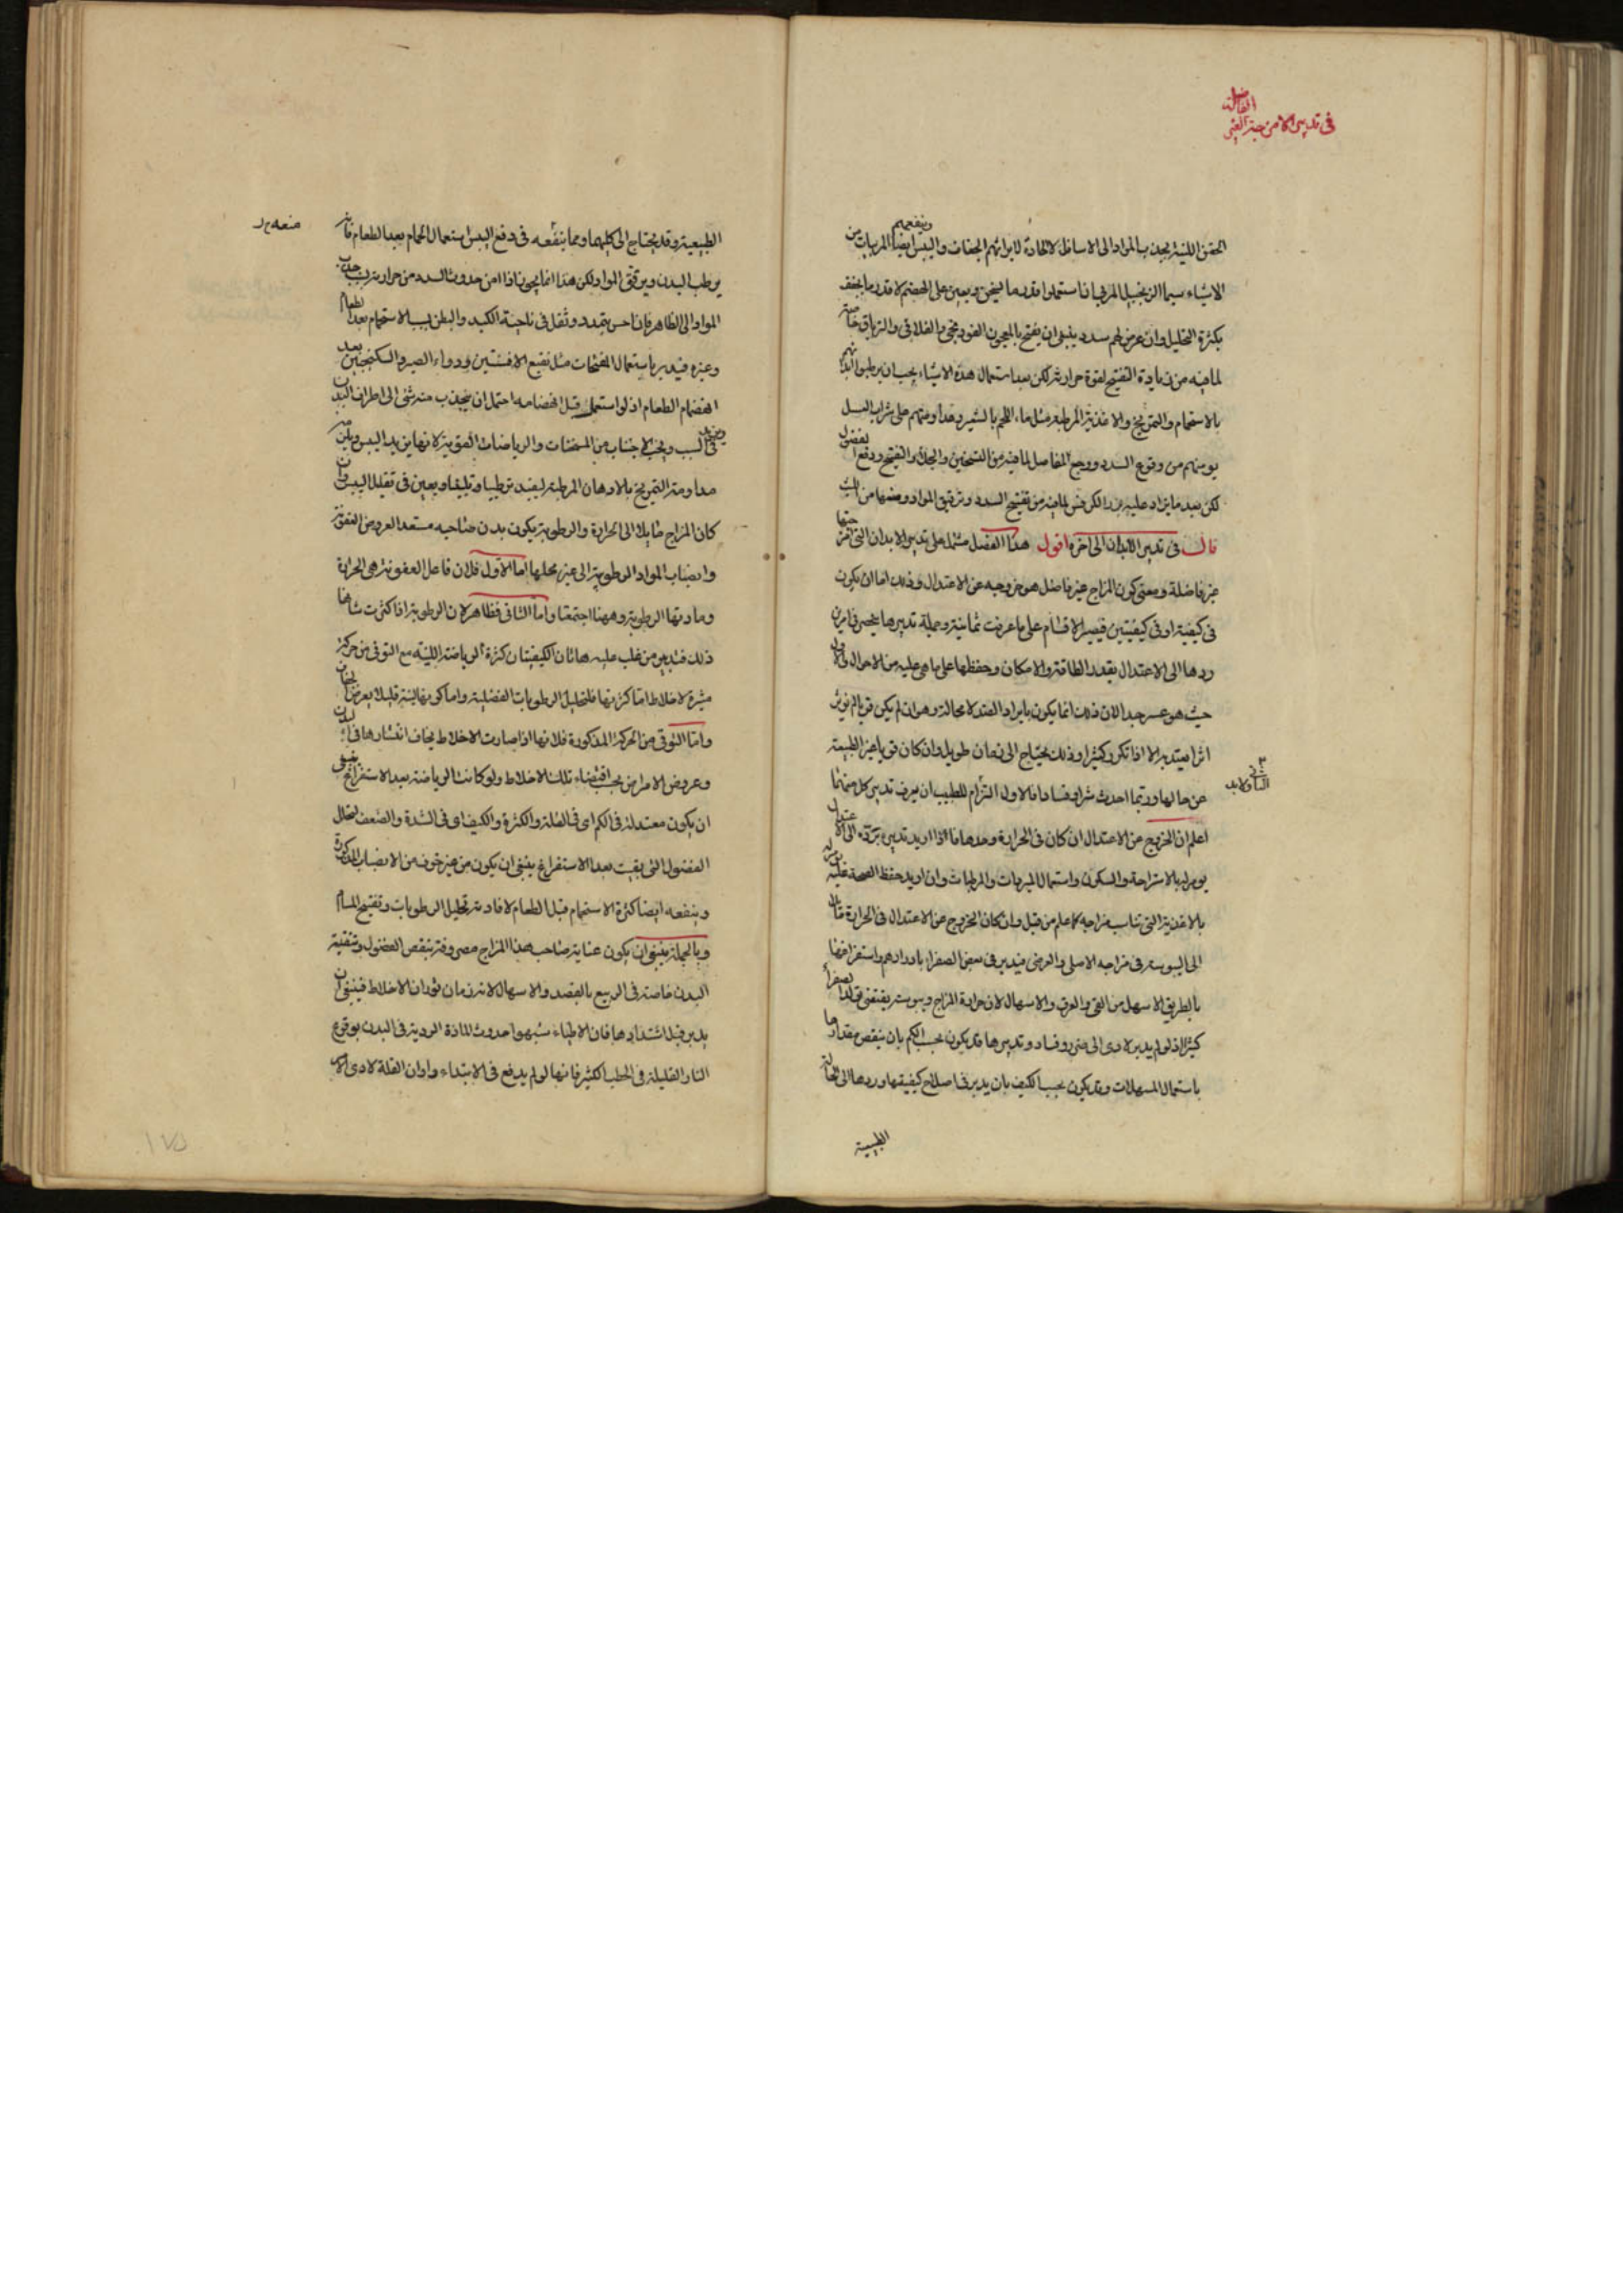 فى تدبير الامزجة الغير
الفاضلة
الحقن اللينة يجذب المواد الى الاسافل لا الحادة لايراثهم الجفاف واليبس وينفعهم ايضا المربيات من
الاشياء سيما الزنجبيل المربى اذا استعملوا قدر ما يسخن ويعين على الهضم لا قدر ما يجفف
بكثرة التحليل وان عرض لهم سدد ينبغى ان يفتح بالمعجون الفودنجى والفلافلى والترياق خاصة
لما فيه من زيادة التفتيح لقوة حرارته لكن بعد استعمال هذه الاشياء يجب ان يرطبوا ابدانهم
بالاستحمام والتمريخ والاغذية المرطبة مثل ماء اللحم بالشعير ومداومتهم على شراب العسل
يومنهم من وقوع السدد ووجع المفاصل لما فيه من التسخين والجلاء والتفتيح ودفع الفضول
لكن بعد ما يزاد عليه بزر الكرفس لما فيه من تفتيح السدد وترقيق المواد ومنعها من اللبث
قال فى تدبير الابدان الى اخره اقول هذا الفصل مشتمل على تدبير الابدان التى امزجتها
غير فاضلة ومعنى كون المزاج غير فاضل هو خروجه عن الاعتدال وذلك اما ان يكون
فى كيفية او فى كيفيتين فيصير الاقسام على ما عرفت ثمانية وجملة تدبيرها ينحصر فى امرين
ردها الى الاعتدال بقدر الطاقة والامكان وحفظها على ما هى عليه من الاحوال والاول
حيث هو عسر جدا لان ذلك انما يكون بايراد الضد لا محالة وهو ان لم يكن قويا لم يؤثر
اثرا يعتد به الا اذا تكرر كثيرا وذلك يحتاج الى زمان طويل وان كان قويا غير الطبيعة
عن حالها وربما احدث شرا وفسادا فالاول التزام للطبيب ان يعرف تدبير كل منهما
الثانى ولابد
اعلم ان الخروج عن الاعتدال ان كان فى الحرارة وحدها فاذا اريد تدبير برده الى الاعتدال
يومر له بالاستراحة والسكون واستعمال المبردات والمرطبات وان اريد حفظ الصحة عليه
بالاغذية التى تناسب مزاجه كما علم من قبل وان كان الخروج عن الاعتدال فى الحرارة مائلا
الى اليبوسة فى مزاجه الاصلى والعرضى فيدبر فى بعض الصفراء بادرارهم واستفراغها
بالطريق الاسهل من القئ والعرق والاسهال لان حرارة المزاج ويبوسته يقتضى تولد الصفراء
كثيرا اذ لو لم يدبر لادى الى ضرر وفساد وتدبيرها قد يكون بحسب الكم بان ينقص مقدارها
باستعمال المسهلات وقد يكون بحسب الكيف بان يدبر فى اصلاح كيفيتها وردها الى الحالة
الطبيعية
الطبيعية وقد يحتاج الى كليهما ومما ينفعه فى دفع اليبس استعمال الحمام بعد الطعام فانه
يرطب البدن ويرقق المواد ولكن هذا انما يجوز اذا امن حدوث السدد من حرارته بسبب جذب
المواد الى الظاهر فان احس بتمدد وثقل فى ناحية الكبد والبطن بسبب الاستحمام بعد الطعام
وغيره فيدبر باستعمال المفتحات مثل نقيع الافسنتين ودواء الصبر والسكنجبين بعد
انهضام الطعام اذ لو استعمل قبل انهضامه احتمل ان ينجذب منه شئ الى اطراف البدن
ويزيد فى السبب ويجب الاجتناب من المسخنات والرياضات القوية لانها يزيد اليبس ويلزم
مداومة التمريخ بالادهان المرطبة ليفيد ترطيبا وتليينا ويعين فى تقليل اليبس وان
كان المزاج مايلا الى الحرارة والرطوبة يكون بدن صاحبه مستعدا لعروض العفونة
وانصباب المواد الرطوبية الى غير محلها اما الاول فلان فاعل العفونة هى الحرارة
ومادتها الرطوبة وههنا اجتمعتا واما الثانى فظاهر لان الرطوبة اذا كثرت شانها
ذلك فتدبير من غلب عليه هاتان الكيفيتان كثرة الرياضة اللينة مع التوقى من حركة
مثيرة لاخلاط اما كثرتها فلتحليل الرطوبات الفضلية واما كونها لينة قليلا يعرض الجفاف
واما التوقى من الحركة المذكورة فلانها اذا صارت الاخلاط يخاف انتشارها فى البدن
وعروض الامراض بحسب اقتضاء تلك الاخلاط ولو كانت الرياضة بعد الاستفراغ ينبغى
ان يكون معتدلة فى الكم اى فى القلة والكثرة والكيف اى فى الشدة والضعف ليتحلل
الفضول التى بقيت بعد الاستفراغ ينبغى ان يكون من غير خوف من الانصباب المذكورة
وينفعه ايضا كثرة الاستحمام قبل الطعام لافادته تحليل الرطوبات وتفتيح المسام
وبالجملة ينبغى ان يكون عناية صاحب هذا المزاج مصروفة بنقص الفضول وتنقية
البدن خاصة فى الربيع بالفصد والاسهال لانه زمان ثوران الاخلاط فينبغى ان
يدبر قبل اشتدادها فان الاطباء شبهوا حدوث المادة الردية فى البدن بوقوع
النار القليلة فى الحطب الكثير فانها لو لم يدفع فى الابتداء واوان القلة لادى الامر
١٧٥